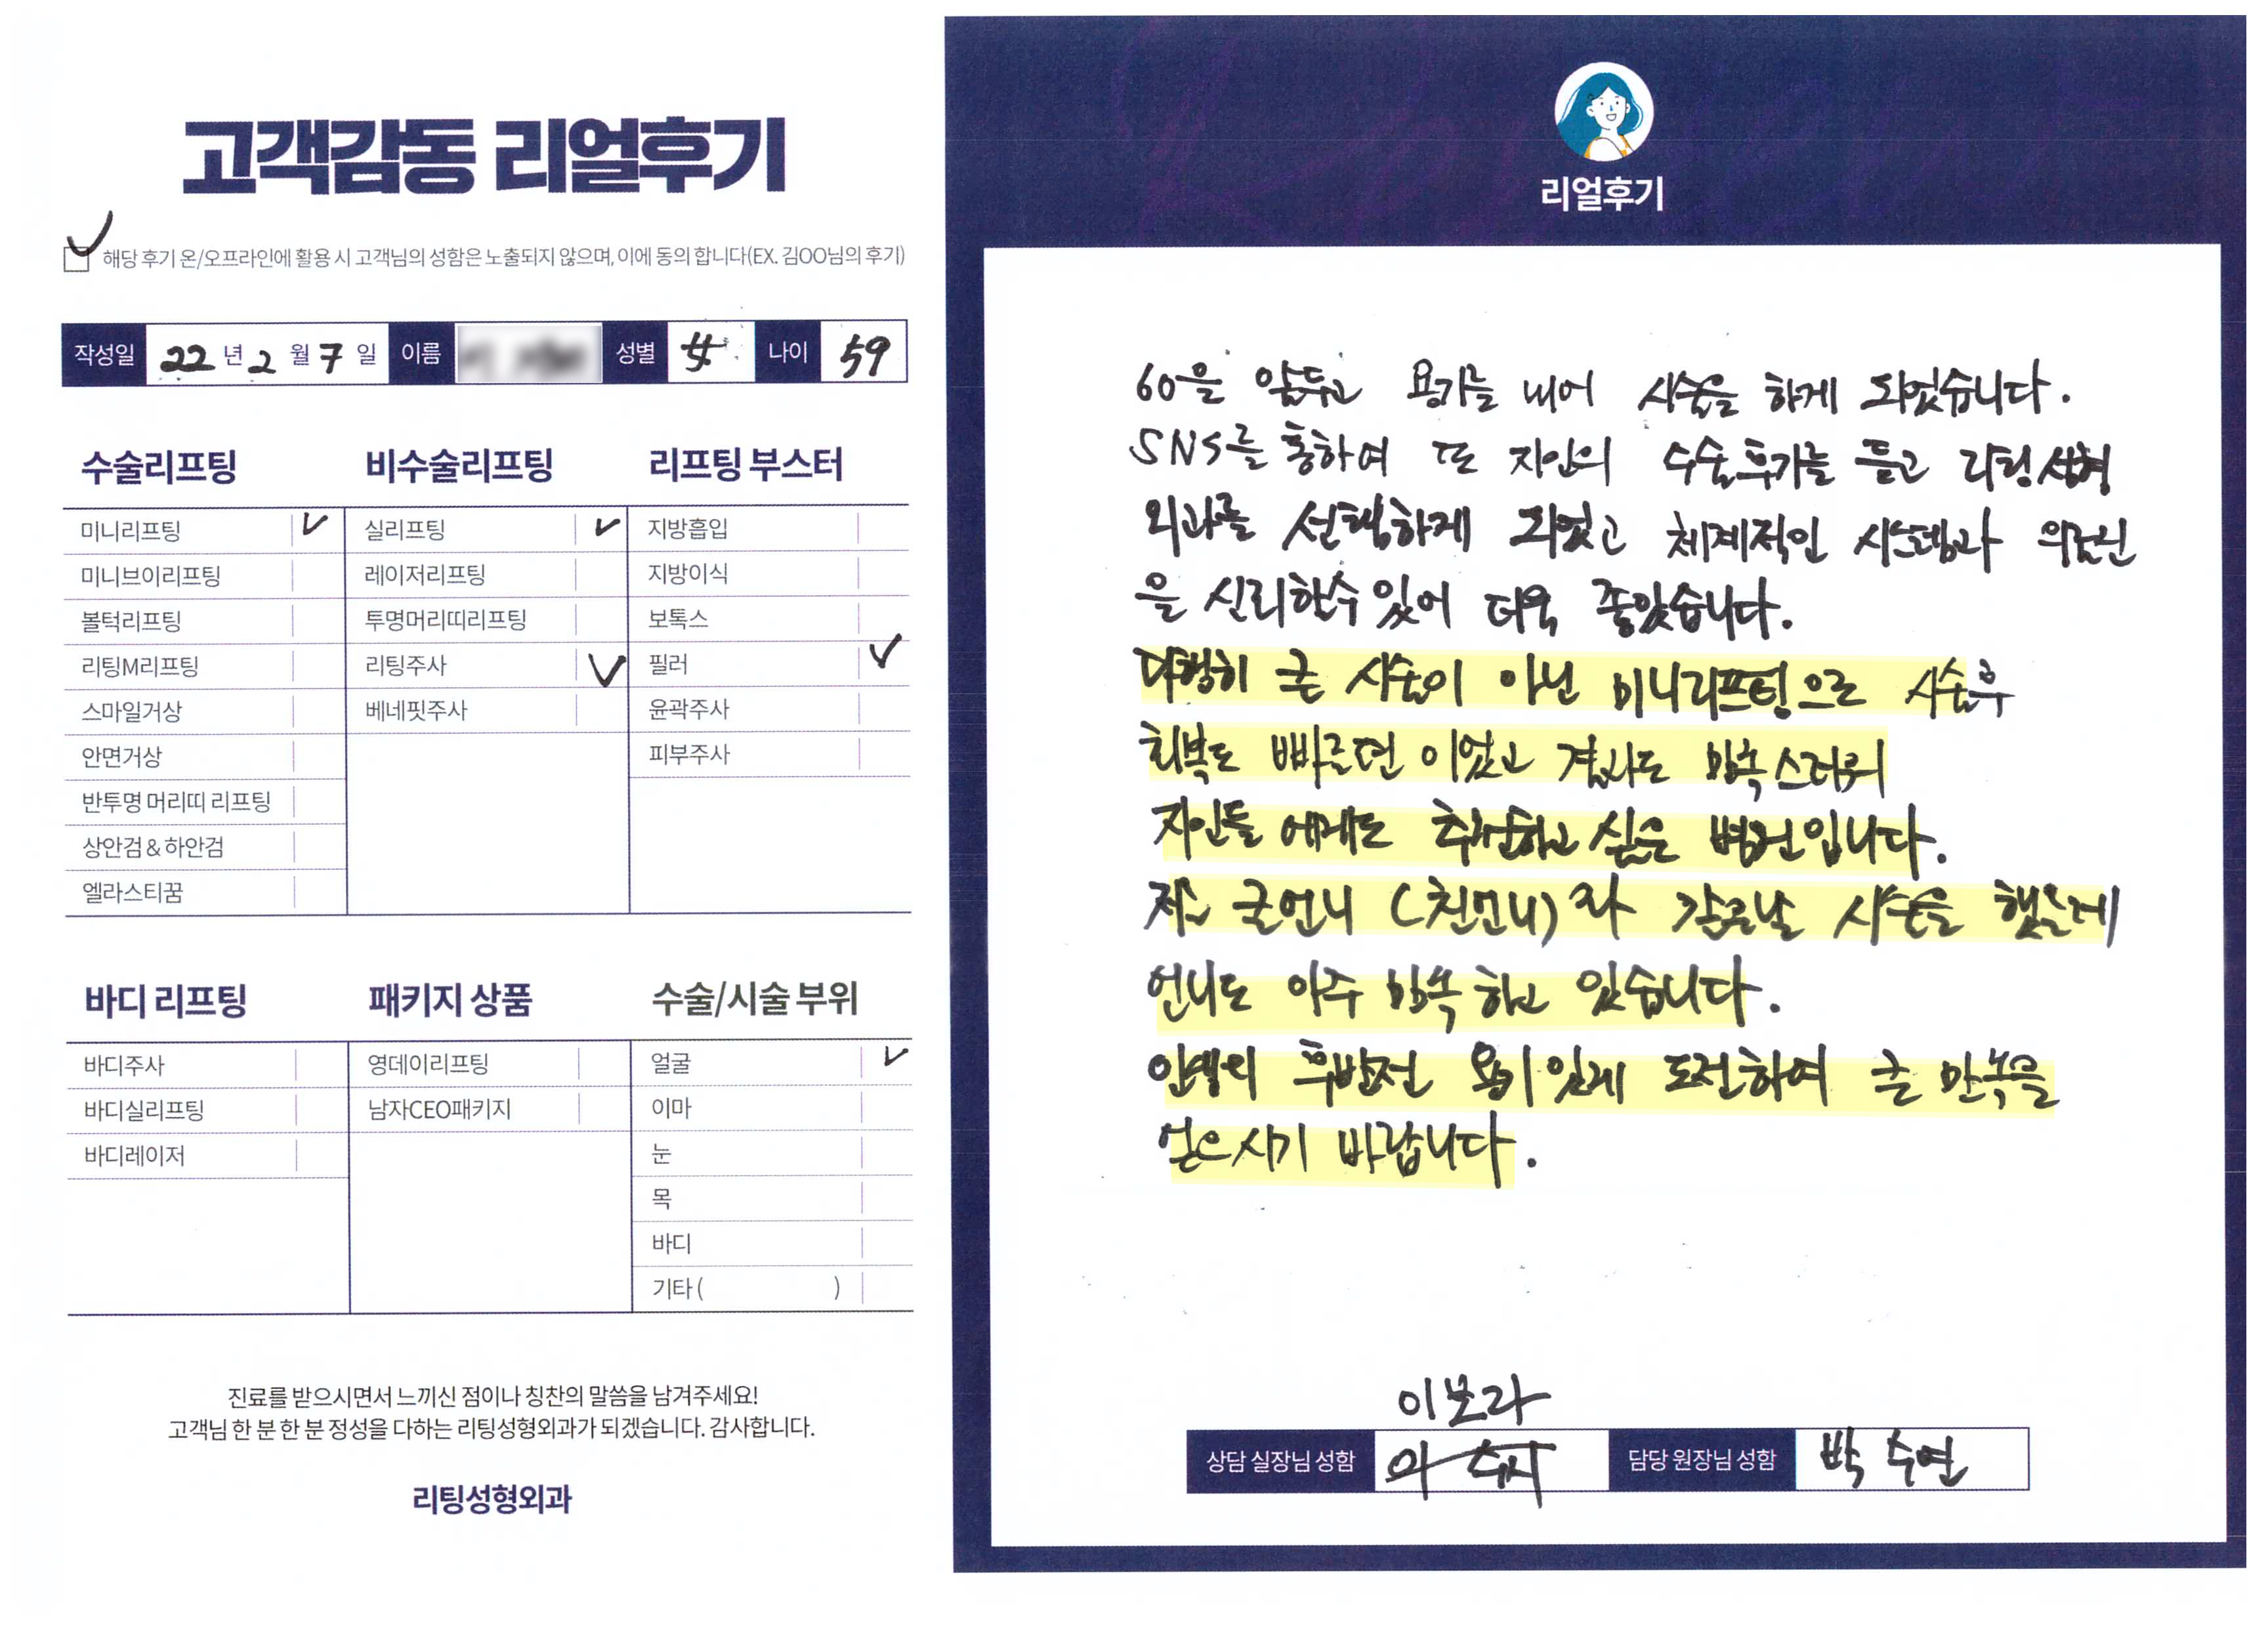 고객감동 리얼후기
해당 후기 온/오프라인에 활용 시 고객님의 성함은 노출되지 않으며, 이에 동의 합니다(EX. 김OO님의 후기)
작성일 22 년 2 월 7 일 이름 성별 女 나이 59
수술리프팅
미니리프팅
미니브이리프팅
볼턱리프팅
리팅M리프팅
스마일거상
안면거상
반투명 머리띠 리프팅
상안검 & 하안검
엘라스티꿈
비수술리프팅
실리프팅
레이저리프팅
투명머리띠리프팅
리팅주사
베네핏주사
리프팅 부스터
지방흡입
지방이식
보톡스
필러
윤곽주사
피부주사
바디 리프팅
바디주사
바디실리프팅
바디레이저
패키지 상품
영데이리프팅
남자CEO패키지
수술/시술 부위
얼굴
이마
눈
목
바디
기타 ( )
진료를 받으시면서 느끼신 점이나 칭찬의 말씀을 남겨주세요!
고객님 한 분 한 분 정성을 다하는 리팅성형외과가 되겠습니다. 감사합니다.
리팅성형외과
리얼후기
60을 앞두고 용기를 내어 시술을 하게 되었습니다.
SNS를 통하여 또 지인의 수술후기를 듣고 리팅성형
외과를 선택하게 되었고 체계적인 시스템과 의료진
을 신뢰할수 있어 더욱 좋았습니다.
다행히 큰 시술이 아닌 미니리프팅으로 시술후
회복도 빠른편 이었고 결과도 만족스러워
지인들 에게도 추천하고 싶은 병원입니다.
저는 큰언니 (친언니)과 같은날 시술을 했는데
언니도 아주 만족 하고 있습니다.
인생의 후반전 용기있게 도전하여 큰 만족을
얻으시기 바랍니다.
이보라
상담 실장님 성함 담당 원장님 성함 박 수연